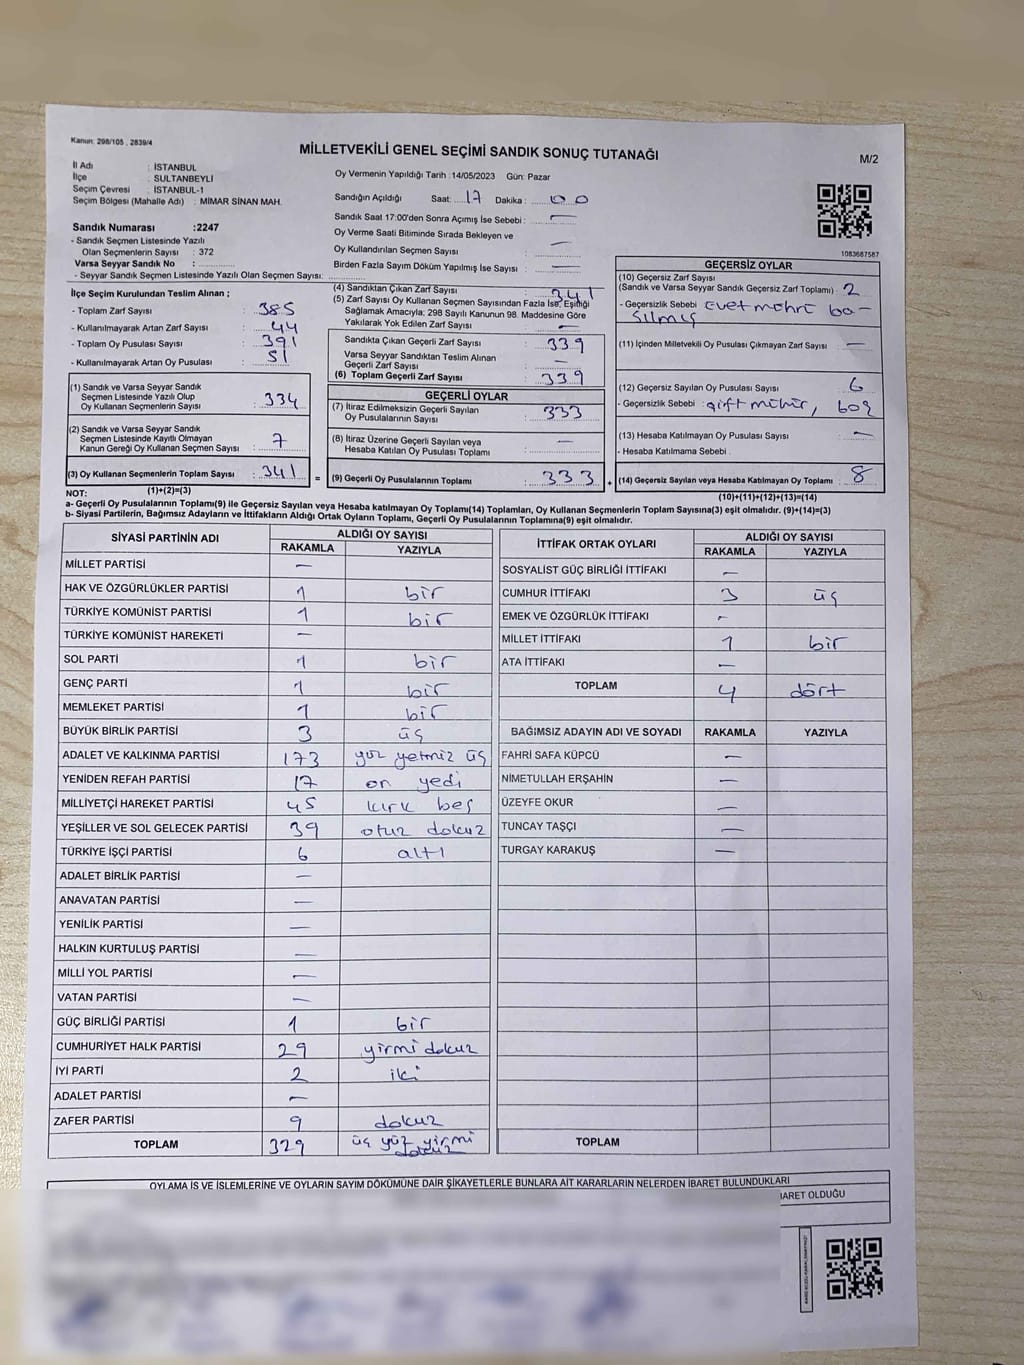 Kanun: 298/105 , 2839/4
MİLLETVEKİLİ GENEL SEÇİMİ SANDIK SONUÇ TUTANAĞI
M/2
İl Adı : İSTANBUL
İlçe : SULTANBEYLİ
Seçim Çevresi : İSTANBUL-1
Seçim Bölgesi (Mahalle Adı) : MİMAR SİNAN MAH.
Oy Vermenin Yapıldığı Tarih : 14/05/2023 Gün: Pazar
Sandığın Açıldığı Saat: 17 Dakika : 00
Sandık Saat 17:00'den Sonra Açımış İse Sebebi : —
Oy Verme Saati Bitiminde Sırada Bekleyen ve
Oy Kullandırılan Seçmen Sayısı —
Birden Fazla Sayım Döküm Yapılmış İse Sayısı : —
Sandık Numarası :2247
- Sandık Seçmen Listesinde Yazılı
Olan Seçmenlerin Sayısı : 372
Varsa Seyyar Sandık No :
- Seyyar Sandık Seçmen Listesinde Yazılı Olan Seçmen Sayısı:
1083687587
İlçe Seçim Kurulundan Teslim Alınan ;
- Toplam Zarf Sayısı : 385
- Kullanılmayarak Artan Zarf Sayısı : 44
- Toplam Oy Pusulası Sayısı : 391
- Kullanılmayarak Artan Oy Pusulası : 51
(1) Sandık ve Varsa Seyyar Sandık
Seçmen Listesinde Yazılı Olup
Oy Kullanan Seçmenlerin Sayısı : 334
(2) Sandık ve Varsa Seyyar Sandık
Seçmen Listesinde Kayıtlı Olmayan
Kanun Gereği Oy Kullanan Seçmen Sayısı : 7
(3) Oy Kullanan Seçmenlerin Toplam Sayısı : 341
(1)+(2)=(3)
(4) Sandıktan Çıkan Zarf Sayısı : 341
(5) Zarf Sayısı Oy Kullanan Seçmen Sayısından Fazla İse, Eşitliği
Sağlamak Amacıyla; 298 Sayılı Kanunun 98. Maddesine Göre
Yakılarak Yok Edilen Zarf Sayısı : —
Sandıkta Çıkan Geçerli Zarf Sayısı : 339
Varsa Seyyar Sandıktan Teslim Alınan
Geçerli Zarf Sayısı : —
(6) Toplam Geçerli Zarf Sayısı : 339
GEÇERLİ OYLAR
(7) İtiraz Edilmeksizin Geçerli Sayılan
Oy Pusulalarının Sayısı : 333
(8) İtiraz Üzerine Geçerli Sayılan veya
Hesaba Katılan Oy Pusulası Toplamı : —
= (9) Geçerli Oy Pusulalarının Toplamı : 333 +
GEÇERSİZ OYLAR
(10) Geçersiz Zarf Sayısı
(Sandık ve Varsa Seyyar Sandık Geçersiz Zarf Toplamı) : 2
- Geçersizlik Sebebi : Evet mührü ba-
sılmış
(11) İçinden Milletvekili Oy Pusulası Çıkmayan Zarf Sayısı : —
(12) Geçersiz Sayılan Oy Pusulası Sayısı : 6
- Geçersizlik Sebebi : çift mühür, boş
(13) Hesaba Katılmayan Oy Pusulası Sayısı : —
- Hesaba Katılmama Sebebi :
(14) Geçersiz Sayılan veya Hesaba Katılmayan Oy Toplamı : 8
(10)+(11)+(12)+(13)=(14)
NOT:
a- Geçerli Oy Pusulalarının Toplamı(9) ile Geçersiz Sayılan veya Hesaba katılmayan Oy Toplamı(14) Toplamları, Oy Kullanan Seçmenlerin Toplam Sayısına(3) eşit olmalıdır. (9)+(14)=(3)
b- Siyasi Partilerin, Bağımsız Adayların ve İttifakların Aldığı Ortak Oyların Toplamı, Geçerli Oy Pusulalarının Toplamına(9) eşit olmalıdır.
SİYASİ PARTİNİN ADI ALDIĞI OY SAYISI
RAKAMLA YAZIYLA
MİLLET PARTİSİ —
HAK VE ÖZGÜRLÜKLER PARTİSİ 1 bir
TÜRKİYE KOMÜNİST PARTİSİ 1 bir
TÜRKİYE KOMÜNİST HAREKETİ —
SOL PARTİ 1 bir
GENÇ PARTİ 1 bir
MEMLEKET PARTİSİ 1 bir
BÜYÜK BİRLİK PARTİSİ 3 üç
ADALET VE KALKINMA PARTİSİ 173 yüz yetmiz üç
YENİDEN REFAH PARTİSİ 17 on yedi
MİLLİYETÇİ HAREKET PARTİSİ 45 kırk beş
YEŞİLLER VE SOL GELECEK PARTİSİ 39 otuz dokuz
TÜRKİYE İŞÇİ PARTİSİ 6 altı
ADALET BİRLİK PARTİSİ —
ANAVATAN PARTİSİ —
YENİLİK PARTİSİ —
HALKIN KURTULUŞ PARTİSİ —
MİLLİ YOL PARTİSİ —
VATAN PARTİSİ —
GÜÇ BİRLİĞİ PARTİSİ 1 bir
CUMHURİYET HALK PARTİSİ 29 yirmi dokuz
İYİ PARTİ 2 iki
ADALET PARTİSİ —
ZAFER PARTİSİ 9 dokuz
TOPLAM 329 üç yüz yirmi
dokuz
İTTİFAK ORTAK OYLARI ALDIĞI OY SAYISI
RAKAMLA YAZIYLA
SOSYALİST GÜÇ BİRLİĞİ İTTİFAKI —
CUMHUR İTTİFAKI 3 üç
EMEK VE ÖZGÜRLÜK İTTİFAKI —
MİLLET İTTİFAKI 1 bir
ATA İTTİFAKI —
TOPLAM 4 dört
BAĞIMSIZ ADAYIN ADI VE SOYADI RAKAMLA YAZIYLA
FAHRİ SAFA KÜPCÜ —
NİMETULLAH ERŞAHİN —
ÜZEYFE OKUR —
TUNCAY TAŞÇI —
TURGAY KARAKUŞ —
TOPLAM
OYLAMA İŞ VE İŞLEMLERİNE VE OYLARIN SAYIM DÖKÜMÜNE DAİR ŞİKAYETLERLE BUNLARA AİT KARARLARIN NELERDEN İBARET BULUNDUKLARI
İBARET OLDUĞU